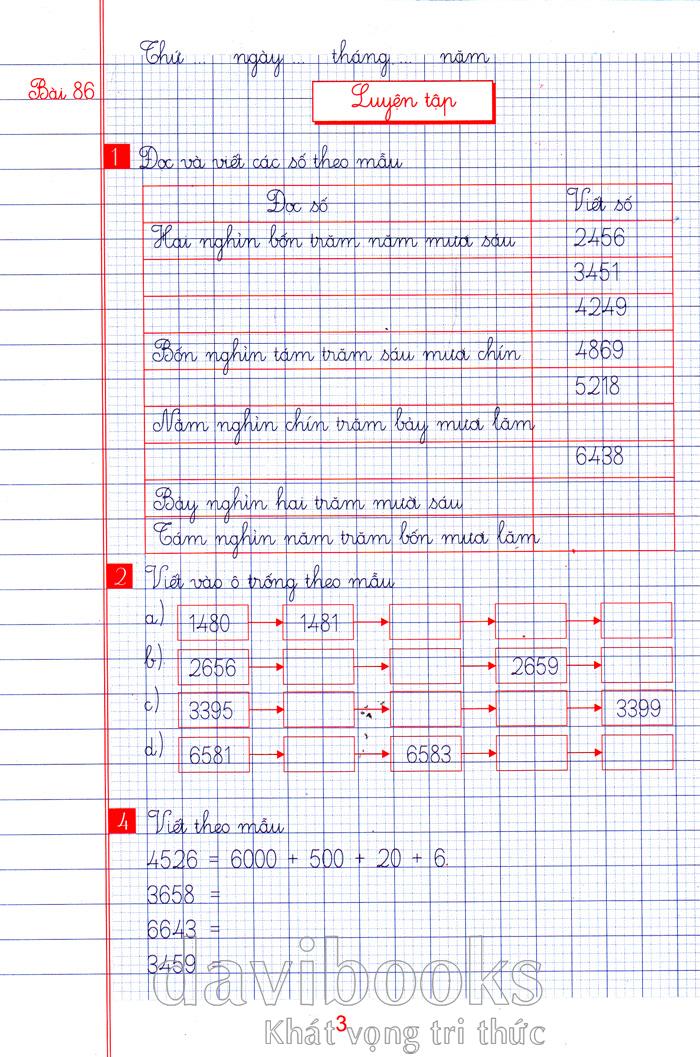 Thứ ... ngày ... tháng ... năm
Bài 86
Luyện tập
1 Đọc và viết các số theo mẫu
Đọc số Viết số
Hai nghìn bốn trăm năm mươi sáu 2456
3451
4249
Bốn nghìn tám trăm sáu mươi chín 4869
5218
Năm nghìn chín trăm bảy mươi lăm
6438
Bảy nghìn hai trăm mười sáu
Tám nghìn năm trăm bốn mươi lăm
2 Viết vào ô trống theo mẫu
a) 1480 1481
b) 2656 2659
c) 3395 3399
d) 6581 6583
4 Viết theo mẫu
4526 = 6000 + 500 + 20 + 6.
3658 =
6643 =
3459 =
davibooks
3
Khát vọng tri thức